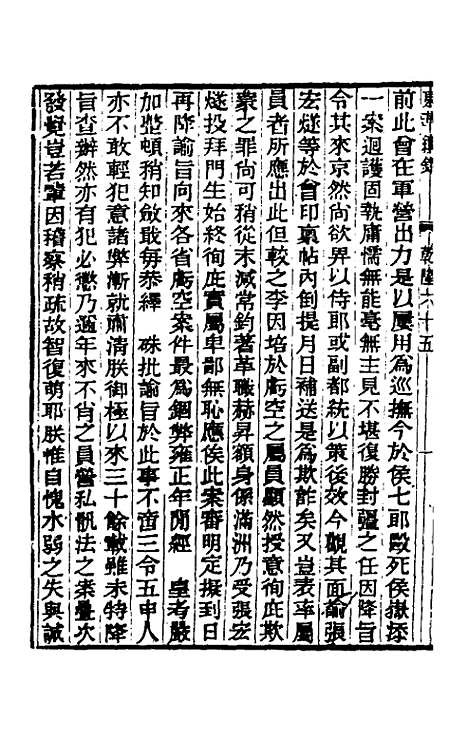 東華續錄　乾隆六十五　一
前此曾在軍營出力是以屢用爲巡撫今於侯七郎毆死侯嶽添
一案迴護固執庸懦無能毫無主見不堪復勝封疆之任因降旨
令其來京然尚欲畀以侍郎或副都統以策後效今觀其面諭張
宏燧等於會印稟帖內倒提月日補送是爲欺詐矣又豈表率屬
員者所應出此但較之李因培於虧空之屬員顯然授意徇庇欺
蒙之罪尚可稍從末減常鈞著革職赫昇額身係滿洲乃受張宏
燧投拜門生始終徇庇實屬卑鄙無恥應俟此案審明定擬到日
再降諭旨向來各省虧空案件最爲錮弊雍正年間經　皇考嚴
加整頓稍知斂戢每恭繹　硃批諭旨於此事不啻三令五申人
亦不敢輕犯意諸弊漸就肅清朕御極以來三十餘載雖未特降
旨查辦然亦有犯必懲乃邇年來不肖之員營私骩法之案疊次
發覺豈若輩因稽察稍疏故智復萌耶朕惟自愧水弱之失與誠